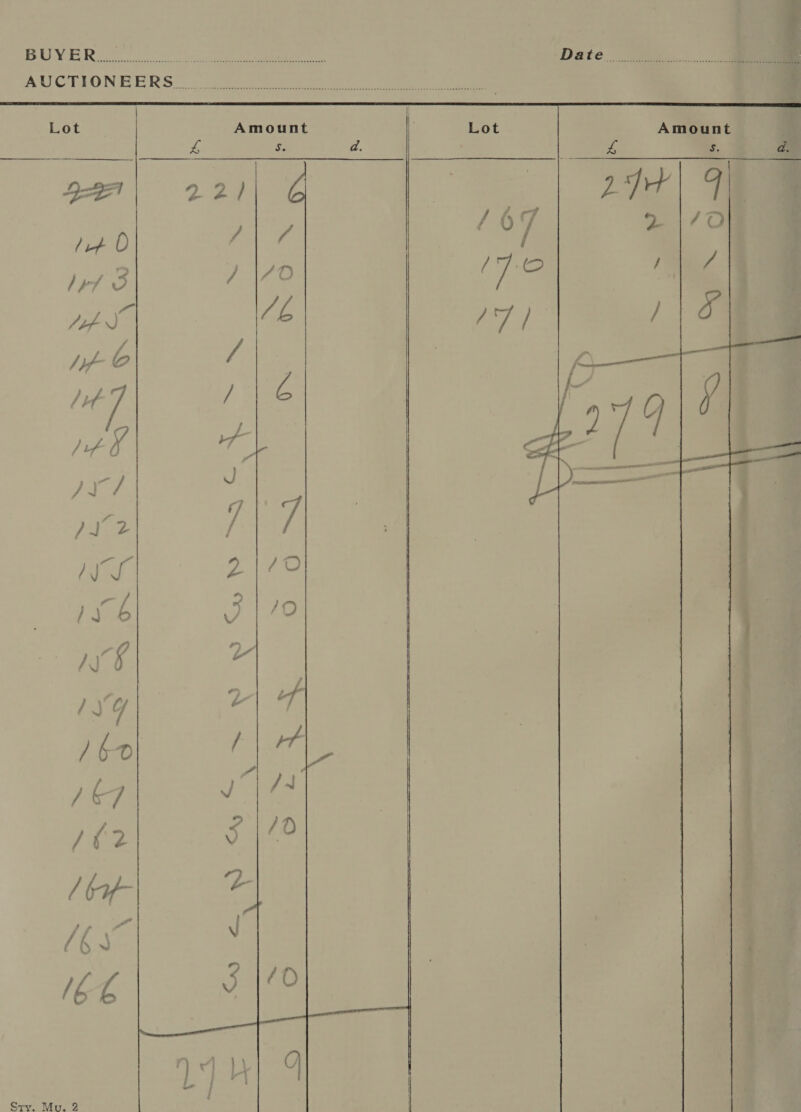 BUYER Date
AUCTIONEERS
Lot Amount Lot Amount
£ s. d. £ s. d.
221 6
140 1 1
143 1 10
145 16
146 1
147 1 6
148 4
151 5
152 7 7
155 2 10
156 3 10
158 2
159 2 4
160 1 4
161 5 15
162 3 10
164 2
165 5
166 3 10
274 9
274 9
167 2 10
170 1 1
171 1 8
£279 8
Sty. Mu. 2